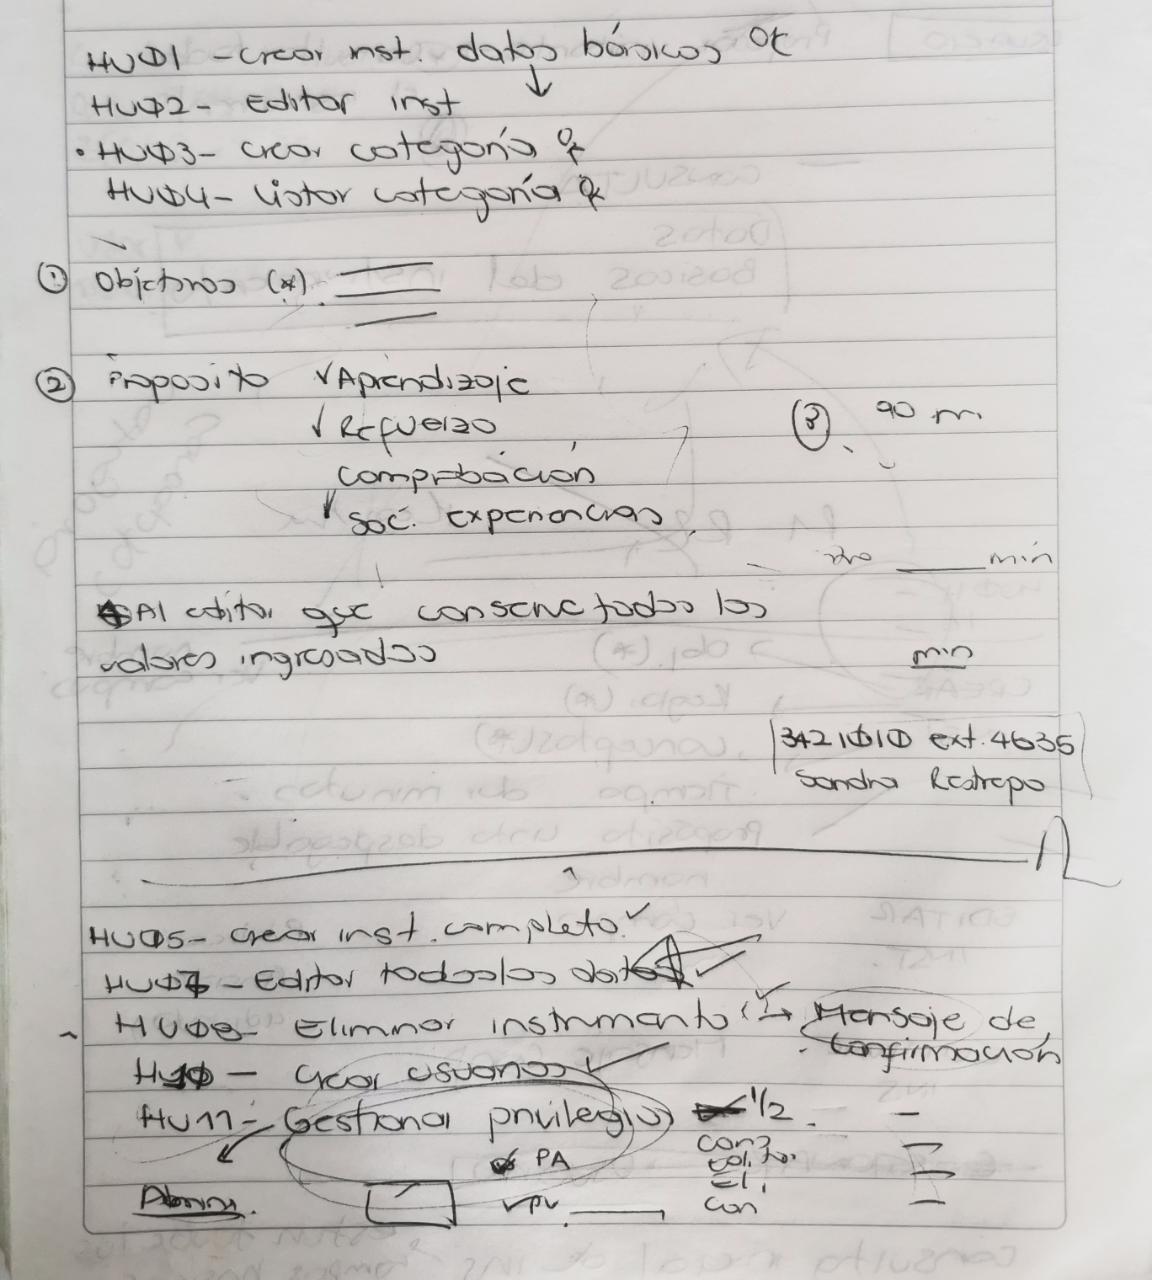 HU01 - Crear inst. datos básicos Ok
HU02 - Editar inst
• HU03 - crear categoría Ok
HU04 - Listar categoría Ok
① Objetivos (*).
② Proposito ✓ Aprendizaje
✓ Refuerzo
③ 90 m.
comprobación
✓ soc. experiencias
min
Al editar que conserve todos los
valores ingresados
min
3421010 ext. 4635
Sandra Restrepo
HU05 - Crear inst. completo ✓
HU07 - Editar todos los datos ✓
HU08 - Eliminar instrumento ✓ → Mensaje de
confirmación
HU10 - Crear usuarios ✓
HU11 - Gestionar privilegios 1/2
PA
✓ PV
El.
con